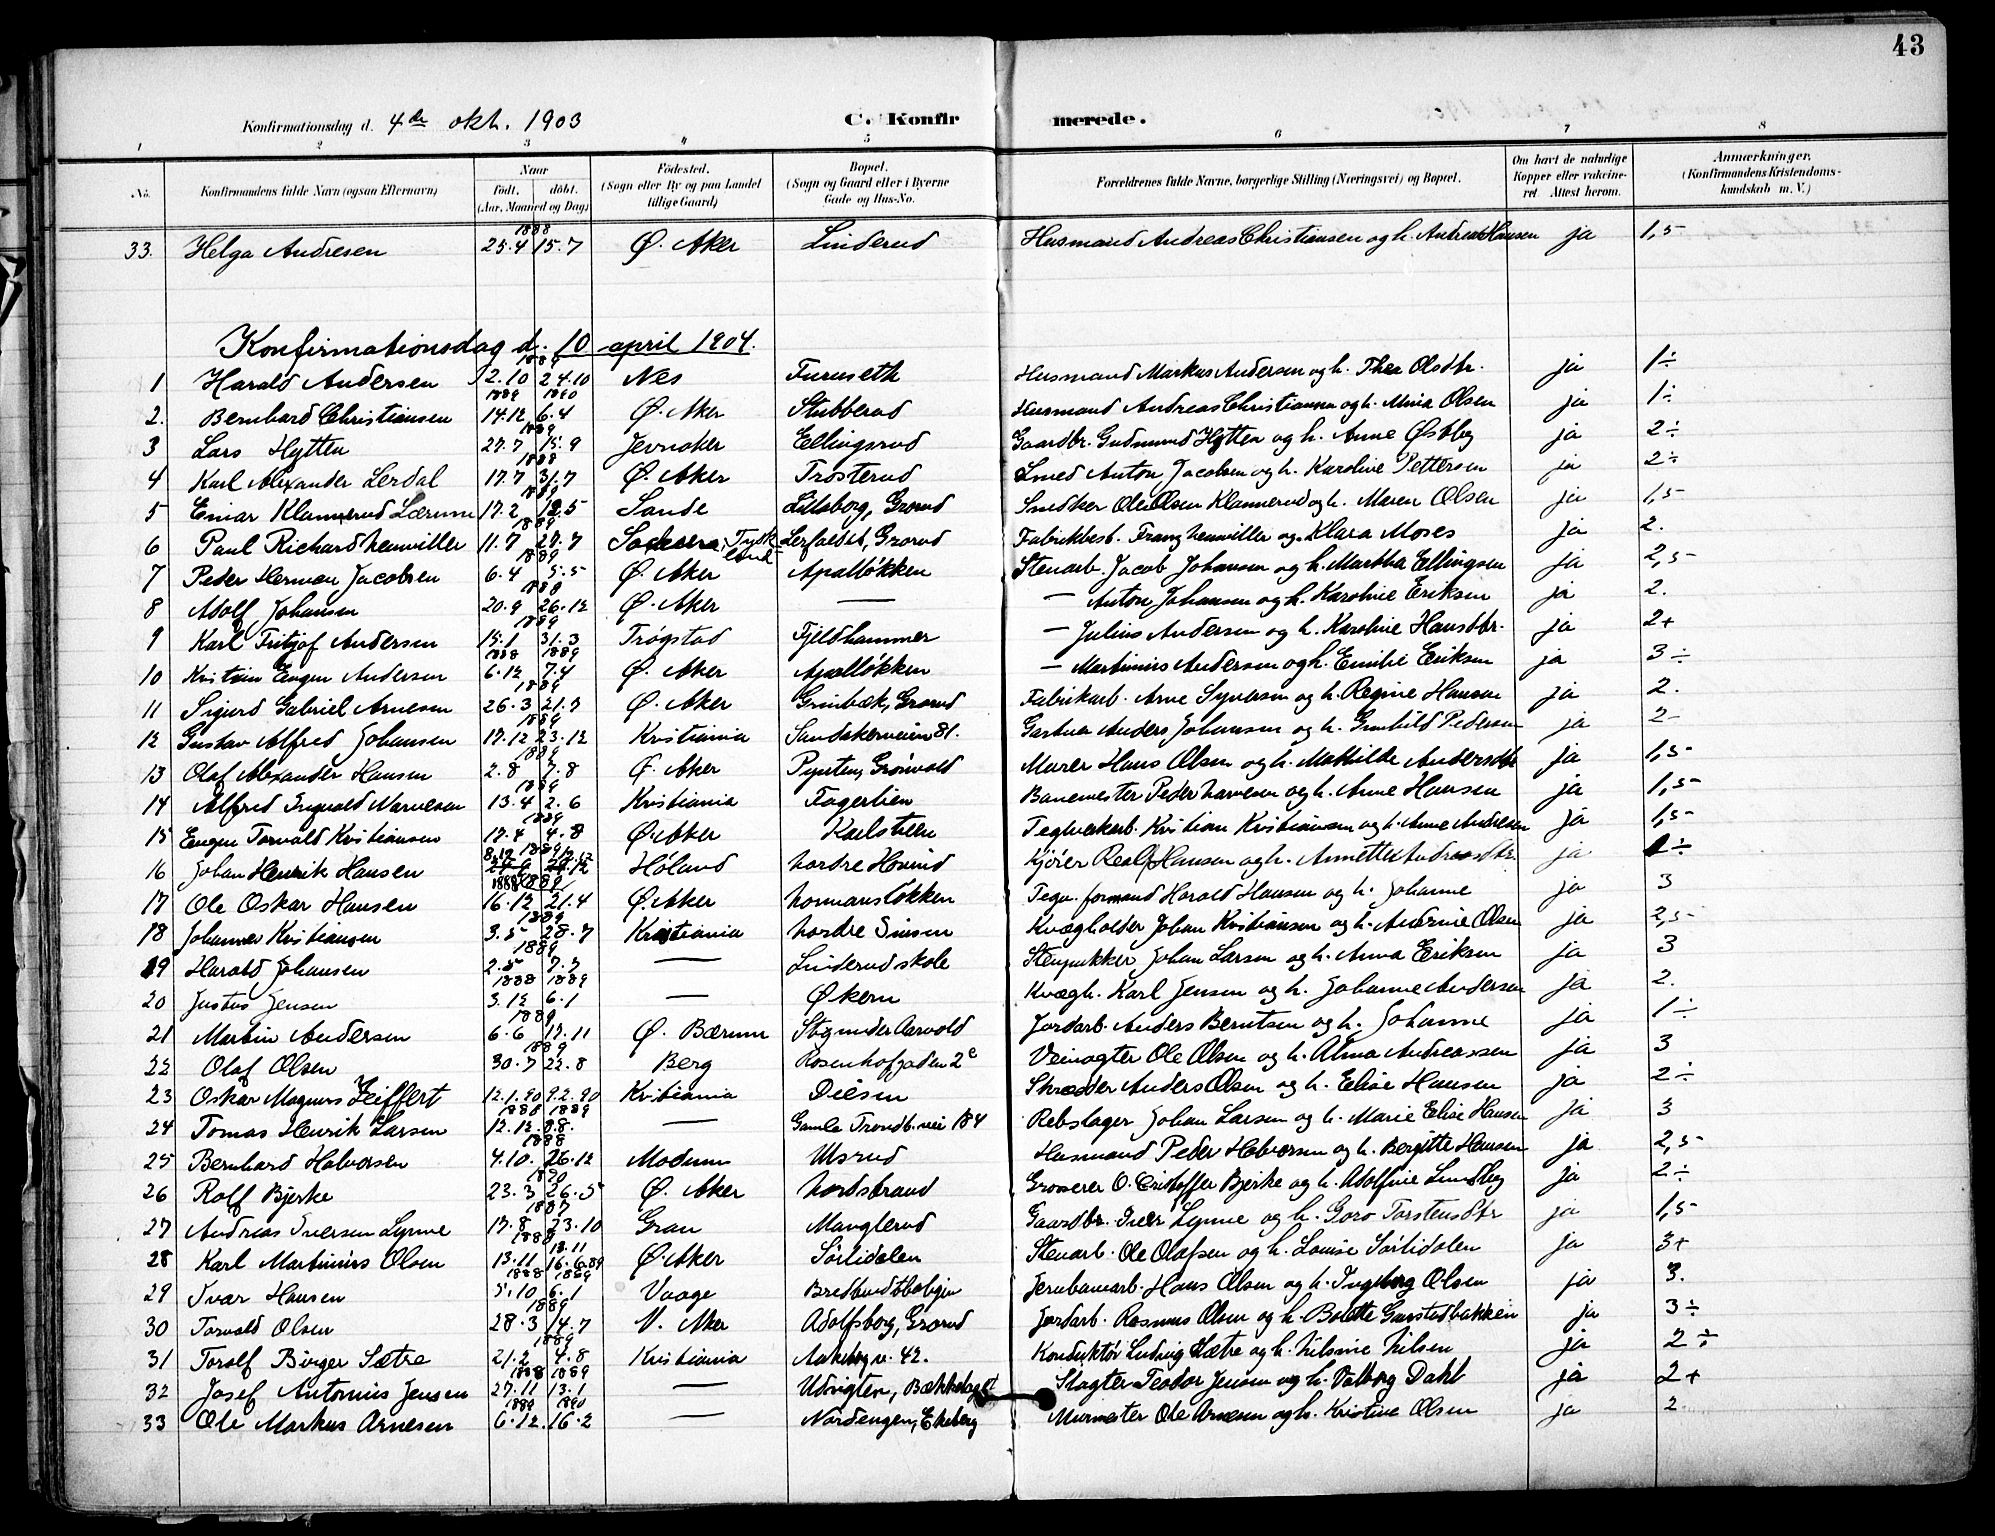 43
Konfirmationsdag d. 4de okt. 1903 C. Konfirmerede.
1 2 3 4 5 6 7 8
No. Konfirmandens fulde Navn (ogsaa Efternavn) Naar født, døbt. (Aar, Maaned og Dag) Fødested. (Sogn eller By og paa Landet tillige Gaard) Bopæl. (Sogn og Gaard eller i Byerne Gade og Hus-No. Forældrenes fulde Navne, borgerlige Stilling (Næringsvei) og Bopæl. Om havt de naturlige Kopper eller vaccineret. Attest herom. Anmærkninger, (Konfirmandens Kristendomskundskab m. V.)
33. Helga Andresen 1888 25.4 15.7 Ø. Aker Linderud Husmand Andreas Christiansen og h. Andrea Hansen ja 1,5
Konfirmationsdag d. 10 april 1904.
1 Harald Andersen 1889 12.10 24.10 Nes Furuseth Husmand Markus Andersen og h. Thea Olsdtr. ja 1÷
2. Bernhard Christiansen 1889 1890 14.12 6.4 Ø. Aker Stubberud Husmand Andreas Christiansen og h. Mina Olsen ja 1÷
3 Lars Hytten 1889 27.7 15.9 Jevnaker Ellingsrud Gaardbr. Gudmund Hytten og h. Anne Østby ja 2÷
4 Karl Alexander Lerdal 1888 17.7 31.7 Ø. Aker Trosterud Smed Anton Jacobsen og h. Karoline Pettersen ja 2÷
5 Einar Klannerud Lærum 1889 17.2 12.5 Sande Lilleborg, Grorud Snedker Ole Olsen Klannerud og h. Maren Olsen ja 1,5
6 Paul Richard Neuwiller 1889 11.7 27.7 Tyskland Lerfaldet, Grorud Fabrikbest. Franz Neuwiller og Klara Moses ja 2.
7 Peder Herman Jacobsen 1889 6.4 5.5 Ø. Aker Apalløkken Stenarb. Jacob Johansen og h. Martha Ellingsen ja 2,5
8 Adolf Johansen 1888 20.9 26.12 Ø. Aker — — Anton Johansen og h. Karoline Eriksen ja 2.
9 Karl Fritjof Andersen 1889 15.1 31.3 Trøgstad Fjeldhammer — Julius Andersen og h. Karoline Hansdtr. ja 2+
10 Kristian Eugen Andersen 1888 1889 6.12 7.4 Ø. Aker Apalløkken — Martinius Andersen og h. Emilie Eriksen ja 3÷
11 Sigurd Gabriel Arnesen 1889 26.3 21.7 Ø. Aker Grinbæk, Grorud Fabrikarb. Arne Syversen og h. Regine Hansen ja 2.
12 Gustav Alfred Johansen 1889 17.12 23.12 Kristiania Sandakerveien 81. Gartner Anders Johansen og h. Gunhild Pedersen ja 2-
13 Olaf Alexander Hansen 1889 2.8 7.8 Ø. Aker Pynten, Grønvold Murer Hans Olsen og h. Mathilde Andersdtr ja 1,5
14 Alfred Ingvald Narvesen 1889 13.4 2.6 Kristiania Fagerlien Banemester Peder Narvesen og h. Anne Hansen ja 1,5
15 Eugen Torvald Kristiansen 1889 17.4 4.8 Ø. Aker Karlsteen Teglverkarb. Kristian Kristiansen og h. Anne Andresen ja 1,5
16 Johan Henrik Hansen 1889 8.12 Høland Nordre Hovind Kjører Realf Hansen og h. Annette Andreasdtr. ja 2÷
17 Ole Oskar Hansen 1888 1889 16.12 21.4 Ø. Aker Normansløkken Tegn. formand Harald Hansen og h. Johanne ja 3
18 Johannes Kristiansen 1889 3.5 28.7 Kristiania Nordre Sinsen Kvægholder Johan Kristiansen og h. Andrine Olsen ja 2,5
19 Harald Johansen 1889 2.5 7.7 — Linderud skole Stenpukker Johan Larsen og h. Anna Eriksen ja 3
20 Justus Jensen 1888 1889 3.12 6.1 — Økern Kvægh. Karl Jensen og h. Johanne Andersen ja 2.
21 Martin Andersen 1889 6.6 17.11 Ø. Bærum Stg under Aarvold Jordarb. Anders Berntsen og h. Johanne ja 1÷
22 Olaf Olsen 1889 30.7 22.8 Berg Rosenhofgaden 2c Veivogter Ole Olsen og h. Alma Andreassen ja 3
23 Oskar Magnus Zeiffert 12.1.90 9.2.90 Kristiania Diesen Skrædder Anders Olsen og h. Elise Hansen ja 2÷
24 Tomas Henrik Larsen 1888 1889 12.12. — Gamle Trondh.vei 184 Rebslager Johan Larsen og h. Marie Elise Hansen ja 3
25 Bernhard Halvorsen 1888 4.10. 26.12 Modum Usrud Husmand Peder Halvorsen og h. Bergitte Hansen ja 2,5
26 Rolf Bjerke 1890 23.3 26.5 Ø. Aker Nordstrand Grosserer O. Cristoffer Bjerke og h. Adolfine Lundby ja 2÷
27 Andreas Iversen Lynne 1887 17.8 23.10 Gran Manglerud Gaardbr. Iver Lynne og h. Goro Torstensdtr ja 1,5
28 Karl Martinius Olsen 1888 13.11 16.6.89 Ø. Aker Sørlidalen Stenarb. Ole Olafsen og h. Louise Sørlidalen ja 3+
29 Ivar Hansen 1888 1889 5.10 6.1 Vaage Jernbanearb. Hans Olsen og h. Ingeborg Olsen ja 3.
30 Torvald Olsen 1889 28.3 14.7 V. Aker Adolfsborg, Grorud Jordarb. Rasmus Olsen og h. Bolette Gunstadbakken ja 3÷
31 Torolf Birger Sætre 1889 21.2 4.8 Kristiania 42. Konduktør Ludvig Sætre og h. Nilsine Nilsen ja 2÷
32 Josef Antonius Jensen 1888 1889 27.11 13.1 — Udsigten, Bækkelaget Slagter Teodor Jensen og h. Valborg Dahl ja 2+
33 Ole Markus Arnesen 1889 1890 6.12. 16.2 — Nordengen, Ekeberg Murmester Ole Arnesen og h. Kristine Olsen ja 2